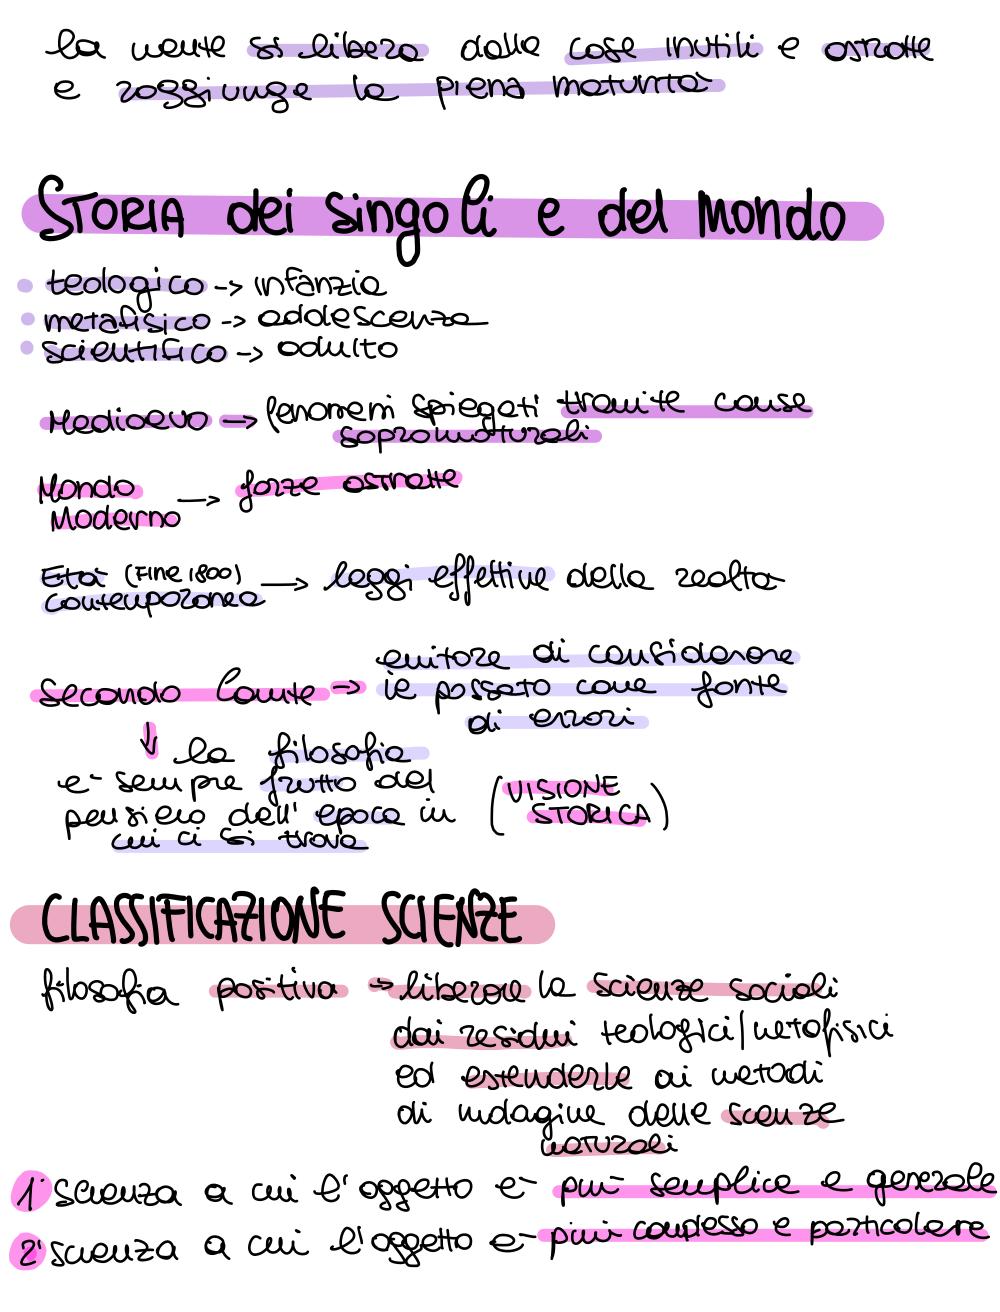 la mente si libera dalle cose inutili e astratte
e raggiunge la piena maturità
STORIA dei singoli e del Mondo
teologico -> infanzia
metafisico -> adolescenza
scientifico -> adulto
Medioevo -> fenomeni spiegati tramite cause
sopramaturali
Mondo
Moderno -> forze astratte
Età (Fine 1800)
contemporanea -> leggi effettive della realtà
Secondo Comte -> evitare di considerare
il passato come fonte
di errori
↓ la filosofia
è sempre frutto del
pensiero dell'epoca in (VISIONE
cui ci si trova STORICA)
CLASSIFICAZIONE SCIENZE
filosofia positiva -> liberare la scienze sociali
dai residui teologici/metafisici
ed estenderle ai metodi
di indagine delle scienze
naturali
1' scienza a cui l'oggetto è più semplice e generale
2' scienza a cui l'oggetto è più complesso e particolare